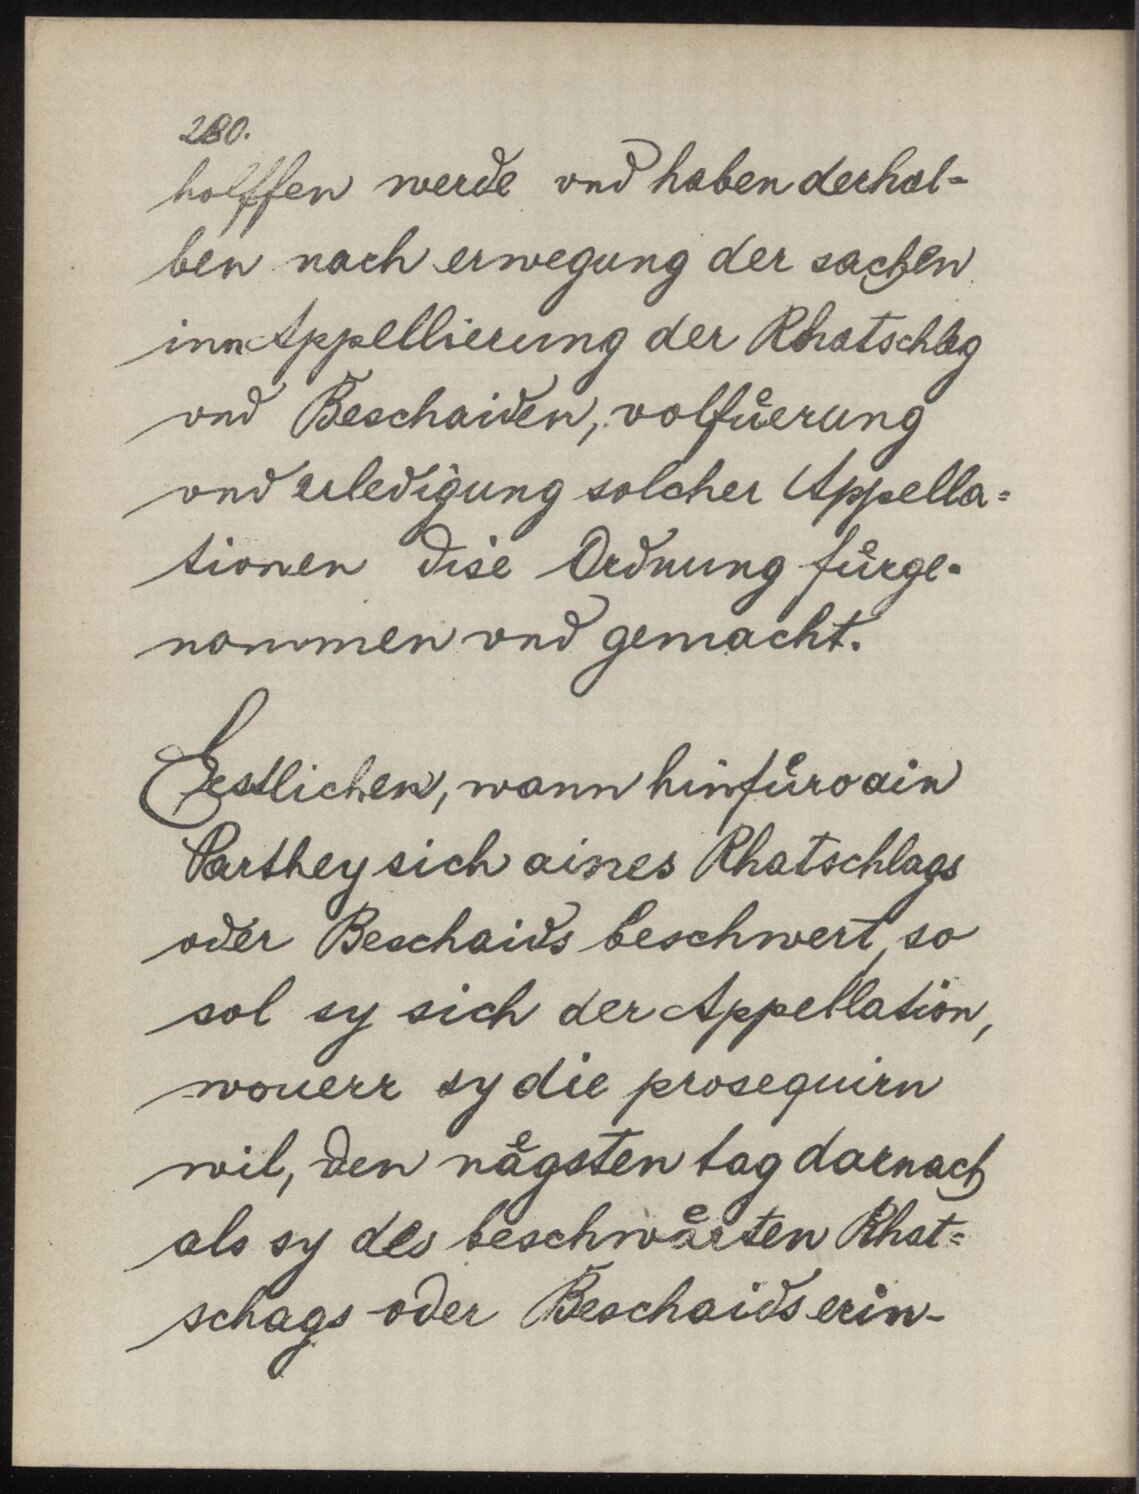 280.
holffen werde vnd haben derhal-
ben nach erwegung der sachen
inn Appellierung der Rhatschleg
vnd Beschaiden, volfuͤerung
vnd erledigung solcher Appella=
tionen dise Ordnung fuͤrge-
nommen vnd gemacht.
Erstlichen, wann hinfuͤro ain
Parthey sich aines Rhatschlags
oder Beschaids beschwert, so
sol sy sich der Appellation,
wouerr sy die prosequirn
wil, den naͤgsten tag darnach
als sy des beschwaͤrten Rhat=
schags oder Beschaids erin-